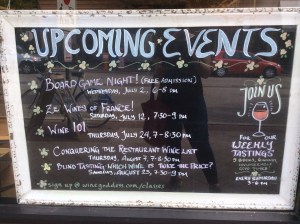 UPCOMING EVENTS
BOARD GAME NIGHT! (FREE ADMISSION)
WEDNESDAY, JULY 2, 6-8 PM
ZE WINES OF FRANCE!
SATURDAY, JULY 12, 7:30-9 PM
WINE 101
THURSDAY, JULY 24, 7-8:30 PM
CONQUERING THE RESTAURANT WINE LIST
THURSDAY, AUGUST 7, 7-8:30 PM
BLIND TASTING: WHICH WINE IS TWICE THE PRICE?
SATURDAY, AUGUST 23, 7:30-9 PM
sign up @ winegoddess.com/classes
JOIN US
FOR OUR
WEEKLY
TASTINGS